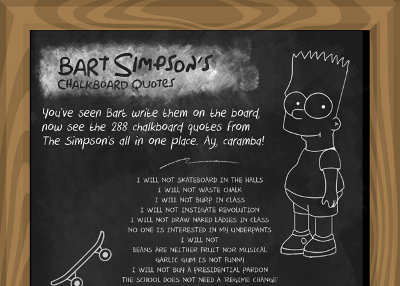 BART SIMPSON'S
CHALKBOARD QUOTES
You've seen Bart write them on the board,
now see the 288 chalkboard quotes from
The Simpson's all in one place. Ay, caramba!
I WILL NOT SKATEBOARD IN THE HALLS
I WILL NOT WASTE CHALK
I WILL NOT BURP IN CLASS
I WILL NOT INSTIGATE REVOLUTION
I WILL NOT DRAW NAKED LADIES IN CLASS
NO ONE IS INTERESTED IN MY UNDERPANTS
I WILL NOT
BEANS ARE NEITHER FRUIT NOR MUSICAL
GARLIC GUM IS NOT FUNNY
I WILL NOT BUY A PRESIDENTIAL PARDON
THE SCHOOL DOES NOT NEED A 'REGIME CHANGE'